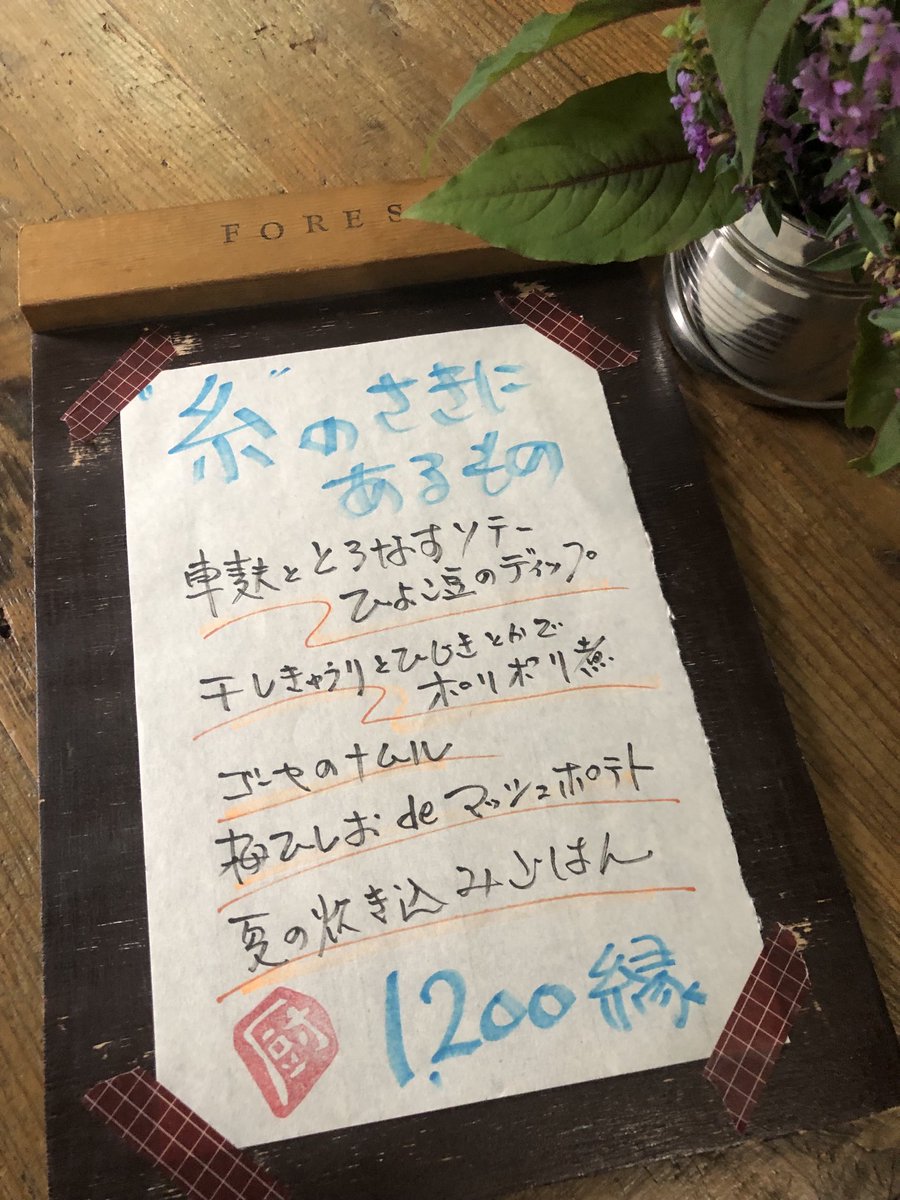 FORES
"糸"のさきに
あるもの
車麸ととろなすソテー
ひよこ豆のディップ
干しきゅうりとひじきとかで
ポリポリ煮
ゴーヤのナムル
梅ひしお de マッシュポテト
夏の炊き込みごはん
厨 1,200縁